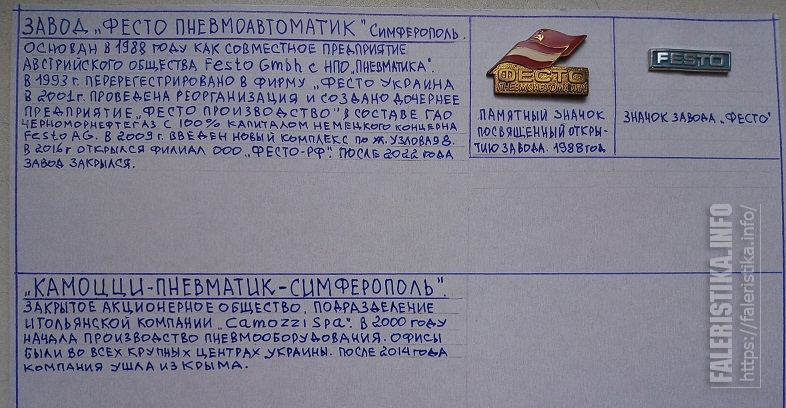 ЗАВОД „ФЕСТО ПНЕВМОАВТОМАТИК" СИМФЕРОПОЛЬ.
ОСНОВАН В 1988 ГОДУ КАК СОВМЕСТНОЕ ПРЕДПРИЯТИЕ
АВСТРИЙСКОГО ОБЩЕСТВА Festo Gmbh С НПО „ПНЕВМАТИКА".
В 1993 г. ПЕРЕРЕГЕСТРИРОВАНО В ФИРМУ „ФЕСТО УКРАИНА
В 2001 г. ПРОВЕДЕНА РЕОРГАНИЗАЦИЯ И СОЗДАНО ДОЧЕРНЕЕ
ПРЕДПРИЯТИЕ „ФЕСТО ПРОИЗВОДСТВО" В СОСТАВЕ ГАО
ЧЕРНОМОРНЕФТЕГАЗ С 100% КАПИТАЛОМ НЕМЕЦКОГО КОНЦЕРНА
Festo AG. В 2009 г. ВВЕДЕН НОВЫЙ КОМПЛЕКС ПО Ж. УЗЛОВАЯ 8.
В 2016 г ОТКРЫЛСЯ ФИЛИАЛ ООО „ФЕСТО-РФ". ПОСЛЕ 2022 ГОДА
ЗАВОД ЗАКРЫЛСЯ.
ФЕСТО
ПНЕВМОАВТОМАТИК
ПАМЯТНЫЙ ЗНАЧОК
ПОСВЯЩЕННЫЙ ОТКРЫ-
ТИЮ ЗАВОДА. 1988 ГОД
FESTO
ЗНАЧОК ЗАВОДА „ФЕСТО"
„КАМОЦЦИ-ПНЕВМАТИК-СИМФЕРОПОЛЬ".
ЗАКРЫТОЕ АКЦИОНЕРНОЕ ОБЩЕСТВО. ПОДРАЗДЕЛЕНИЕ
ИТОЛЬЯНСКОЙ КОМПАНИИ „Camozzi Spa". В 2000 ГОДУ
НАЧАЛА ПРОИЗВОДСТВО ПНЕВМООБОРУДОВАНИЯ. ОФИСЫ
БЫЛИ ВО ВСЕХ КРУПНЫХ ЦЕНТРАХ УКРАИНЫ. ПОСЛЕ 2014 ГОДА
КОМПАНИЯ УШЛА ИЗ КРЫМА.
FALERISTIKA.INFO
https://faleristika.info/